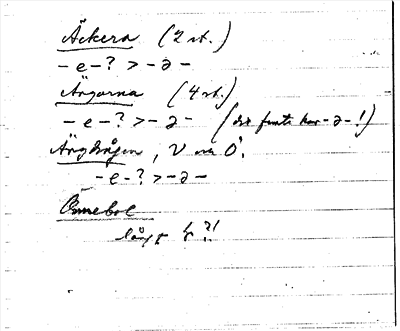 Äckera (2 st.)
- e - ? > - ə -
Ängarna (4 st.)
- e - ? > - ə - ( finte har - ə - !)
Ängkågen, V om Ö.
- e - ? > - ə -
Ömnebol
långt ?!